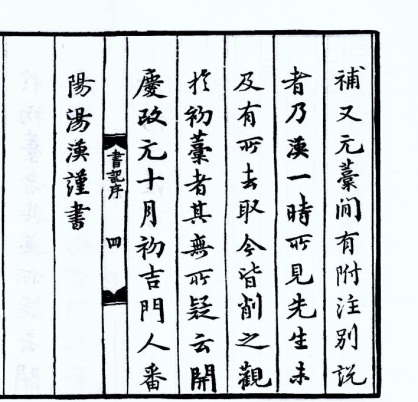 補又元藁間有附注别說
者乃漢一時所見先生未
及有所去取今皆削之觀
扵初藁者其無所疑云開
慶改元十月初吉門人番
書記序 四
陽湯漢謹書